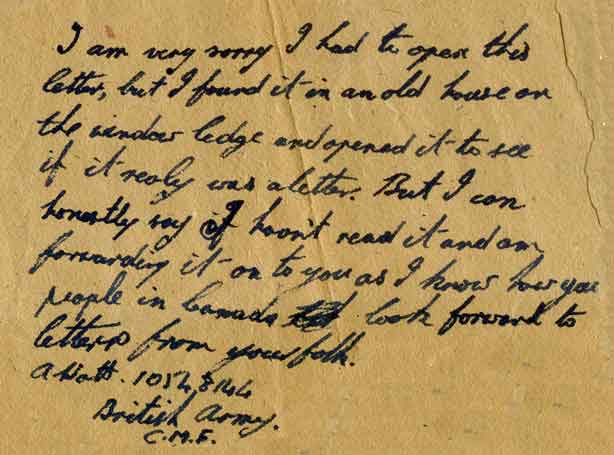 I am very sorry I had to open this
letter, but I found it in an old house on
the window ledge and opened it to see
if it realy was a letter. But I can
honestly say I havn't read it and am
forwarding it on to you as I know how you
people in Canada look forward to
letters from your folk.
A Watt. 10548144
British Army.
C.M.F.